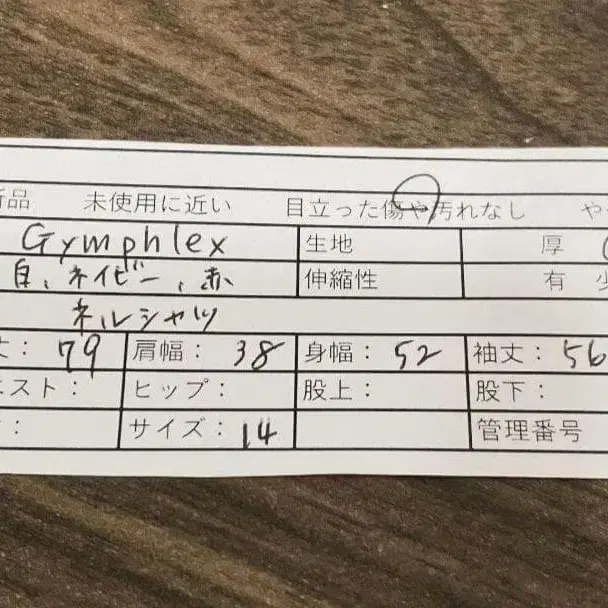 新品 未使用に近い 目立った傷や汚れなし や
Gymphlex 生地 厚
白、ネイビー、赤 伸縮性 有 少
ネルシャツ
丈： 79 肩幅： 38 身幅： 52 袖丈： 56
エスト： ヒップ： 股上： 股下：
： サイズ： 14 管理番号